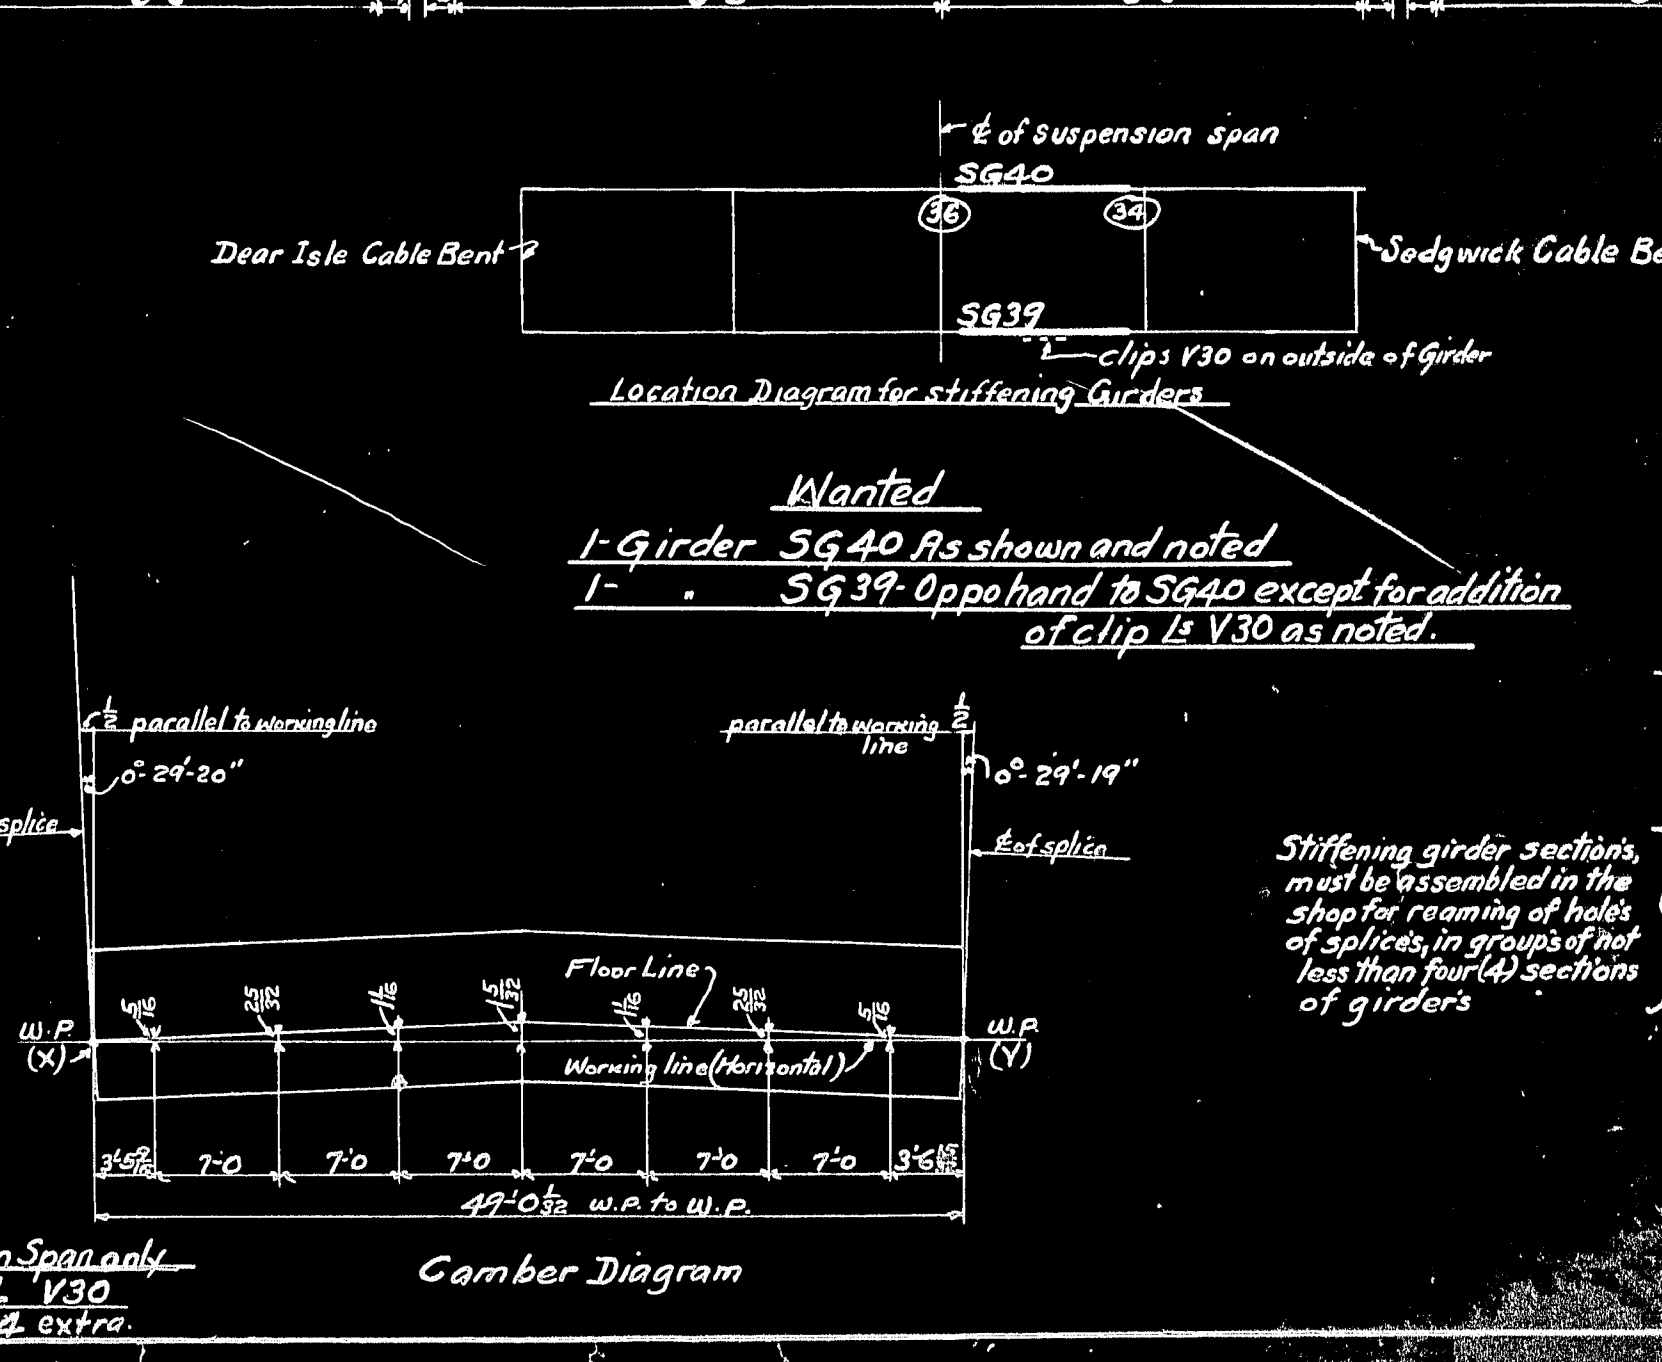 ℄ of suspension span
SG40
36 34
Dear Isle Cable Bent
Sedgwick Cable
SG39
clips V30 on outside of Girder
Location Diagram for stiffening Girders
Wanted
1-Girder SG40 As shown and noted
1- " SG39-Oppohand to SG40 except for addition
of clip Ls V30 as noted.
1/2 parallel to working line
parallel to working 1/2
line
0°-29'-20"
0°-29'-19"
splice
℄ of splice
Stiffening girder sections,
must be assembled in the
shop for reaming of holes
of splices, in groups of not
less than four (4) sections
of girders
Floor Line
5/16 25/32 1 1/16 1 5/32 1 1/16 25/32 5/16
W.P.
(X)
W.P.
(Y)
Working line (Horizontal)
3'-5 9/16 7'-0 7'-0 7'-0 7'-0 7'-0 7'-0 3'-6 15/32
49'-0 1/32 W.P. to W.P.
Span only
V30
extra.
Camber Diagram